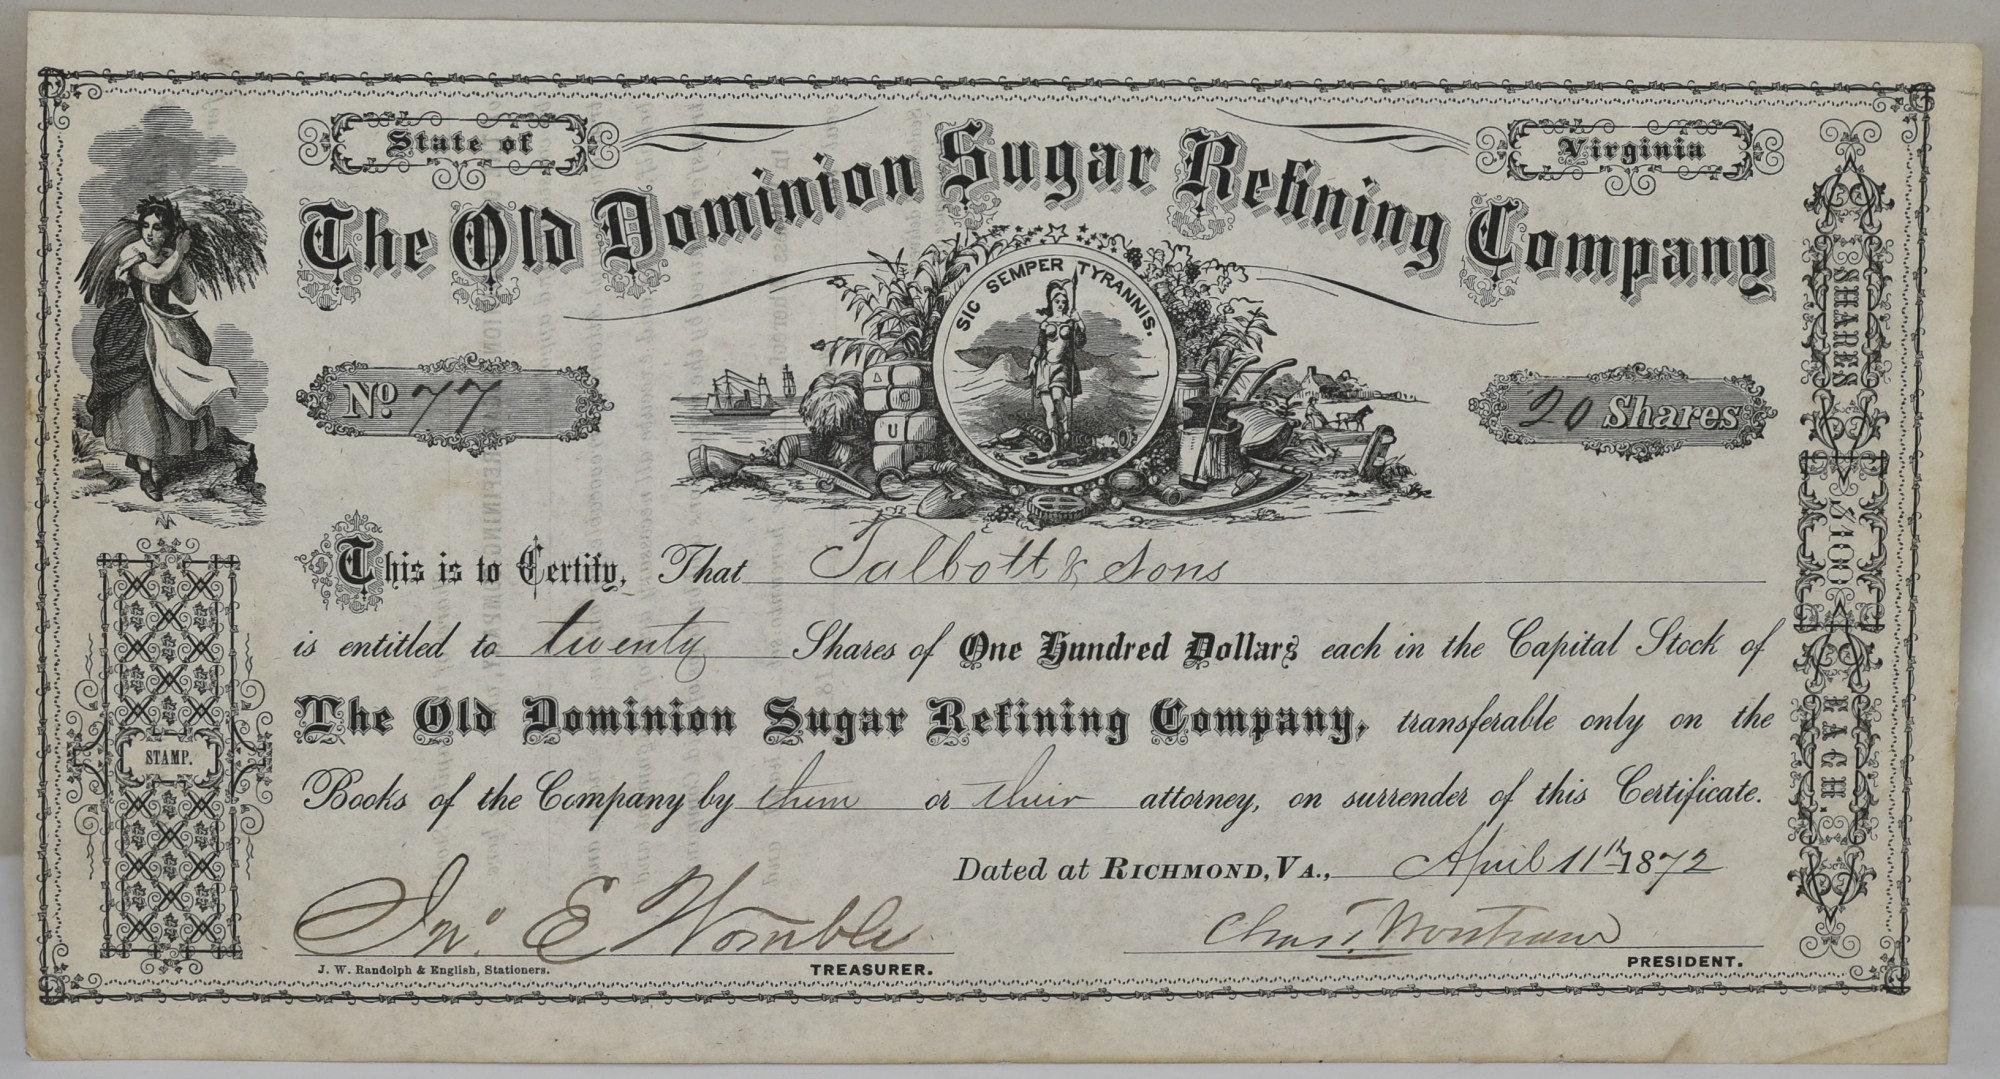 State of
Virginia
The Old Dominion Sugar Refining Company
SIC SEMPER TYRANNIS.
No. 77
U
20 Shares
This is to Certify, That Talbott & Sons
is entitled to twenty Shares of One Hundred Dollars each in the Capital Stock of
The Old Dominion Sugar Refining Company, transferable only on the
Books of the Company by them or their attorney, on surrender of this Certificate.
Dated at RICHMOND, VA., April 11th 1872
Jno. E Womble
Chas. T. Wortham
J. W. Randolph & English, Stationers.
TREASURER.
PRESIDENT.
STAMP.
SHARES $100 EACH.